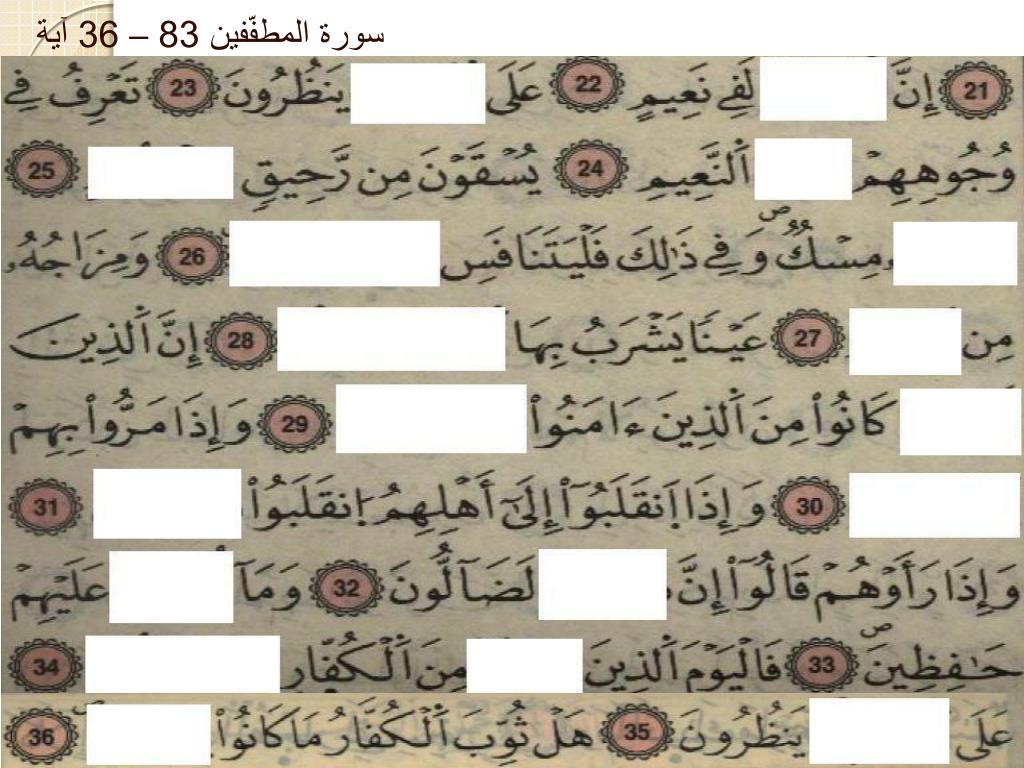 سورة المطفّفين 83 – 36 آية
21 إِنَّ لَفِے نَعِيمٍ 22 عَلَى يَنظُرُونَ 23 تَعْرِفُ فِے
وُجُوهِهِمْ اَ۬لنَّعِيمِ 24 يُسْقَوْنَ مِن رَّحِيقٍ 25
مِسْكٌ وَفِے ذَٰلِكَ فَلْيَتَنَافَسِ 26 وَمِزَاجُهُۥ
مِن 27 عَيْناً يَشْرَبُ بِهَا 28 إِنَّ اَ۬لذِينَ
كَانُواْ مِنَ اَ۬لذِينَ ءَامَنُواْ 29 وَإِذَا مَرُّواْ بِهِمْ
30 وَإِذَا اَ۪نقَلَبُوٓاْ إِلَىٰٓ أَهْلِهِمُ اُ۪نقَلَبُواْ 31
وَإِذَا رَأَوْهُمْ قَالُوٓاْ إِنَّ لَضَآلُّونَ 32 وَمَآ عَلَيْهِمْ
حَٰفِظِينَ 33 فَالْيَوْمَ اَ۬لذِينَ مِنَ اَ۬لْكُفّ۪ارِ 34
عَلَى يَنظُرُونَ 35 هَلْ ثُوِّبَ اَ۬لْكُفَّارُ مَا كَانُواْ 36